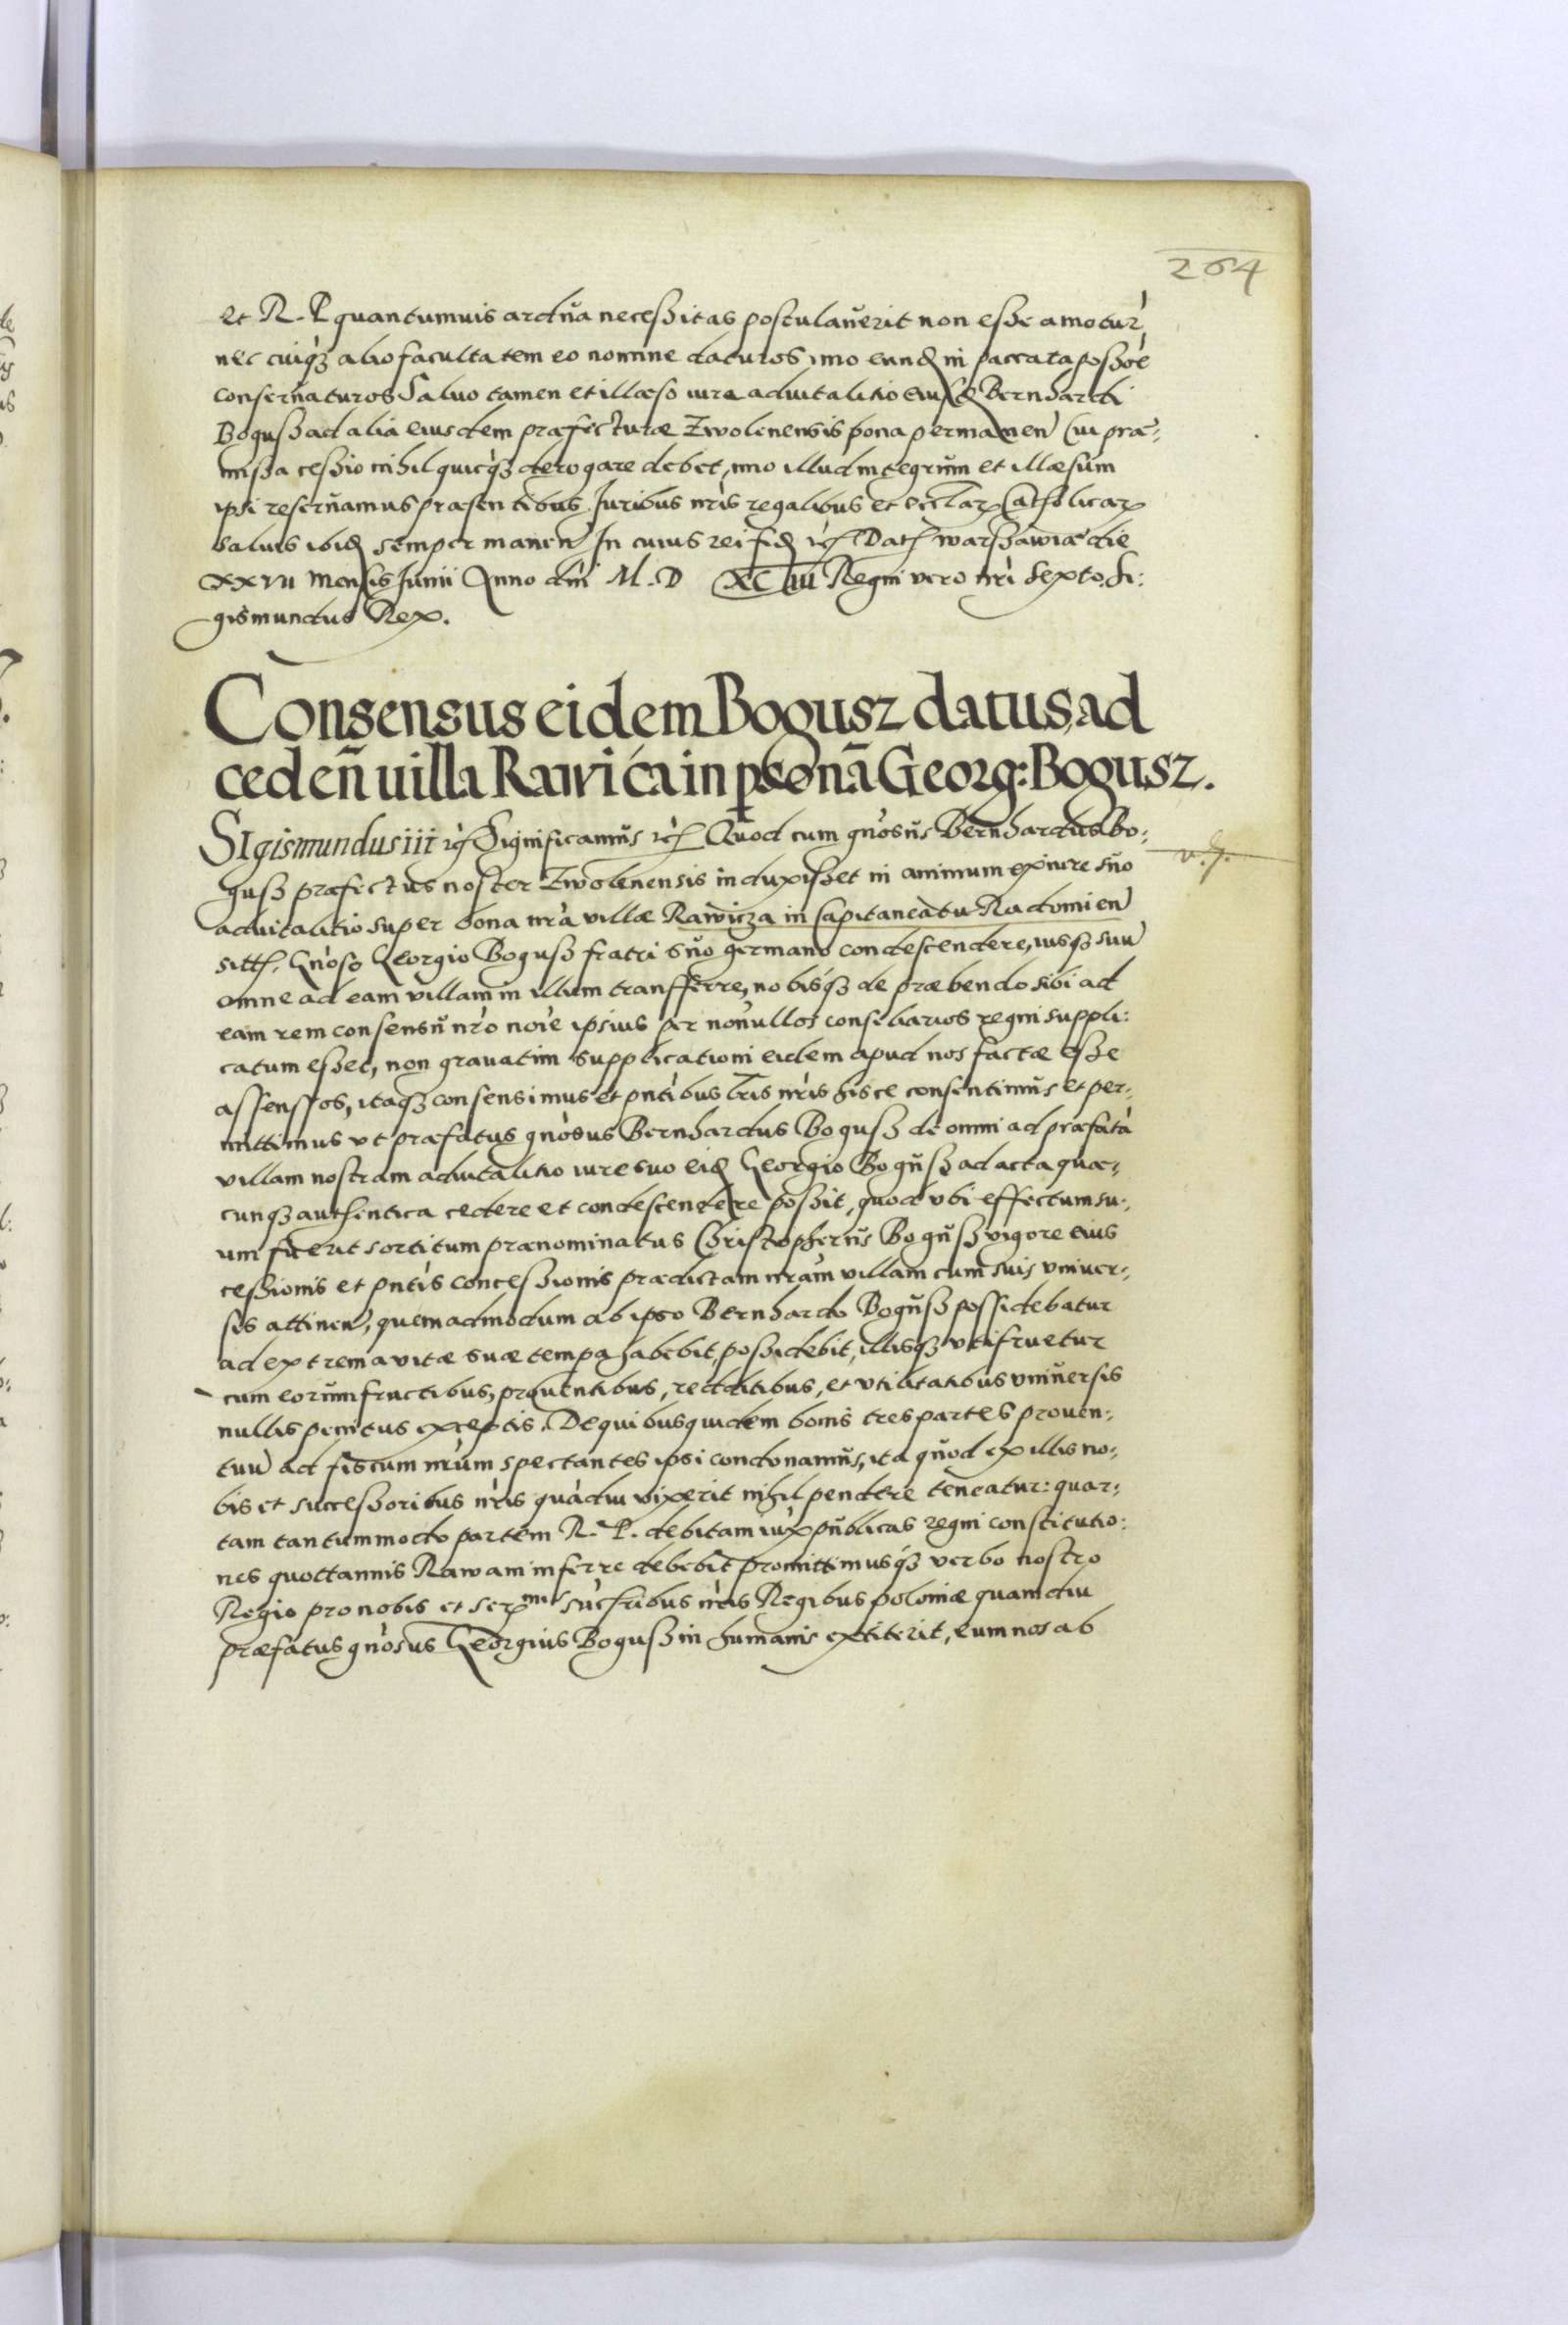 264
et R. P quantumuis ardua necessitas postulauerit non esse amotur̀
nec cuiq̀ꝫ alio facultatem eo nomine daturos, imo eundē in paccata possòe
conseruaturos Saluo tamen et illæso iure aduitalitio eiusdē Bernhardi
Bogusz ad alia eiusdem præfecturæ Zwolenensis bona permanen̄ Cui præ-
missa cessio nihil quicq̀ꝫ derogare debet, imo illud integrum et illæsum
ipsi reseruamus præsentibus. Juribus nr̀is regalibus et eccl̄arꝫ Catholicarꝫ
saluis ibidē semper manen̄ In cuius rei fidē ꝛc̀ Datꝭ warszawiæ die
xxvii Mensis Junii Anno dn̄i M. D XC iii Regni vero nr̀i sexto. Si:
gismundus Rex.
Consensus eidem Bogusz datus, ad
ceden̄ uilla Rawića in psonā Georg: Bogusz.
SIgismundus iii ꝛc̀ Significamus ꝛc̀ Quod cum gnòsus Bernhardus Bo:
v. g.
gusz præfectus noster Zwolenensis induxisset in animum ex iure suo
aduitalitio super bona nr̀a villæ Rawicza in Capitaneatu Radomien̄
sittꝭ. Gnòso Georgio Bogusz fratri suo germano condescendere, iusqꝫ suū
omne ad eam villam in illum transferre, nobisq̀ꝫ de præbendo sibi ad
eam rem consensu nr̀o noìe ipsius per nonnullos consiliarios regni suppli:
catum esset, non grauatim supplicationi eidem apud nos factæ esse
assensos, itaqꝫ consensimus et pnt̀ibus lr̄is nr̀is hisce consentimus et per-
mittimus vt præfatus gnòsus Bernhardus Bogusz de omni ad præfatà
villam nostram aduitalitio iure suo eidē Georgio Bogusz ad acta quæ-
cunqꝫ authentica cedere et condescendere possit, quod vbi effectum su-
um fuerit sortitum prænominatus Christopherus Bogusz vigore eius
cessionis et pnt̀is concessionis prædictam nr̀am villam cum suis vniuer-
sis attinen̄, quemadmodum ab ipso Bernhardo Bogusz possidebatur
ad extrema vitæ suæ tempa habebit, possidebit, illisqꝫ vtifruetur
cum eorum fructibus, prouentibus, redditibus, et vtilitatibus vniuersis
nullis penitus exceptis. De quibus quidem bonis tres partes prouen-
tuū ad fiscum nr̀um spectantes ipsi condonamus, ita quod ex illis no-
bis et successoribus nr̀is quàdiu vixerit nihil pendere teneatur: quar-
tam tantummodo partem R. P. debitam iux̀ publicas regni constitutio:
nes quottannis Rawam inferre debebit promittimusq̀ꝫ verbo nostro
Regio pro nobis et serᵐⁱˢ sùcs̄ribus nr̀is Regibus poloniæ quamdiu
præfatus gnòsus Georgius Bogusz in humanis extiterit, eum nos ab